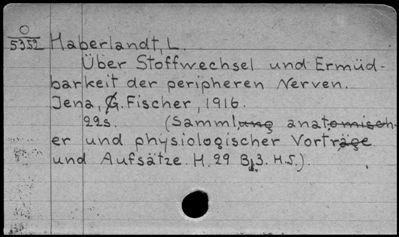 O
5352
Haberlandt, L.
Über Stoffwechsel und Ermüd-
barkeit der peripheren Nerven.
Jena, G. Fischer, 1916.
22s. (Sammlung anatomisch-
er und physiologischer Vorträge
und Aufsätze. H. 29 Bd 3. H.5.).